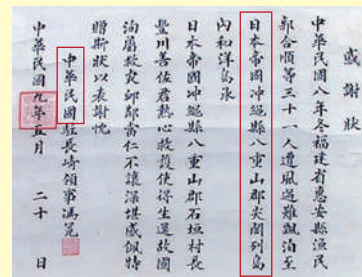 感謝狀
中華民國八年冬福建省惠安縣漁民
郭合順等三十一人遭風遇難飄泊至
日本帝國沖繩縣八重山郡尖閣列島
內和洋島承
日本帝國沖繩縣八重山郡石垣村長
豐川善佐君熱心救護使得生還故國
洵屬救灾卹鄰當仁不讓深堪感佩特
贈斯狀以表謝忱
中華民國駐長崎領事馮冕
中華民國九年五月 二十 日